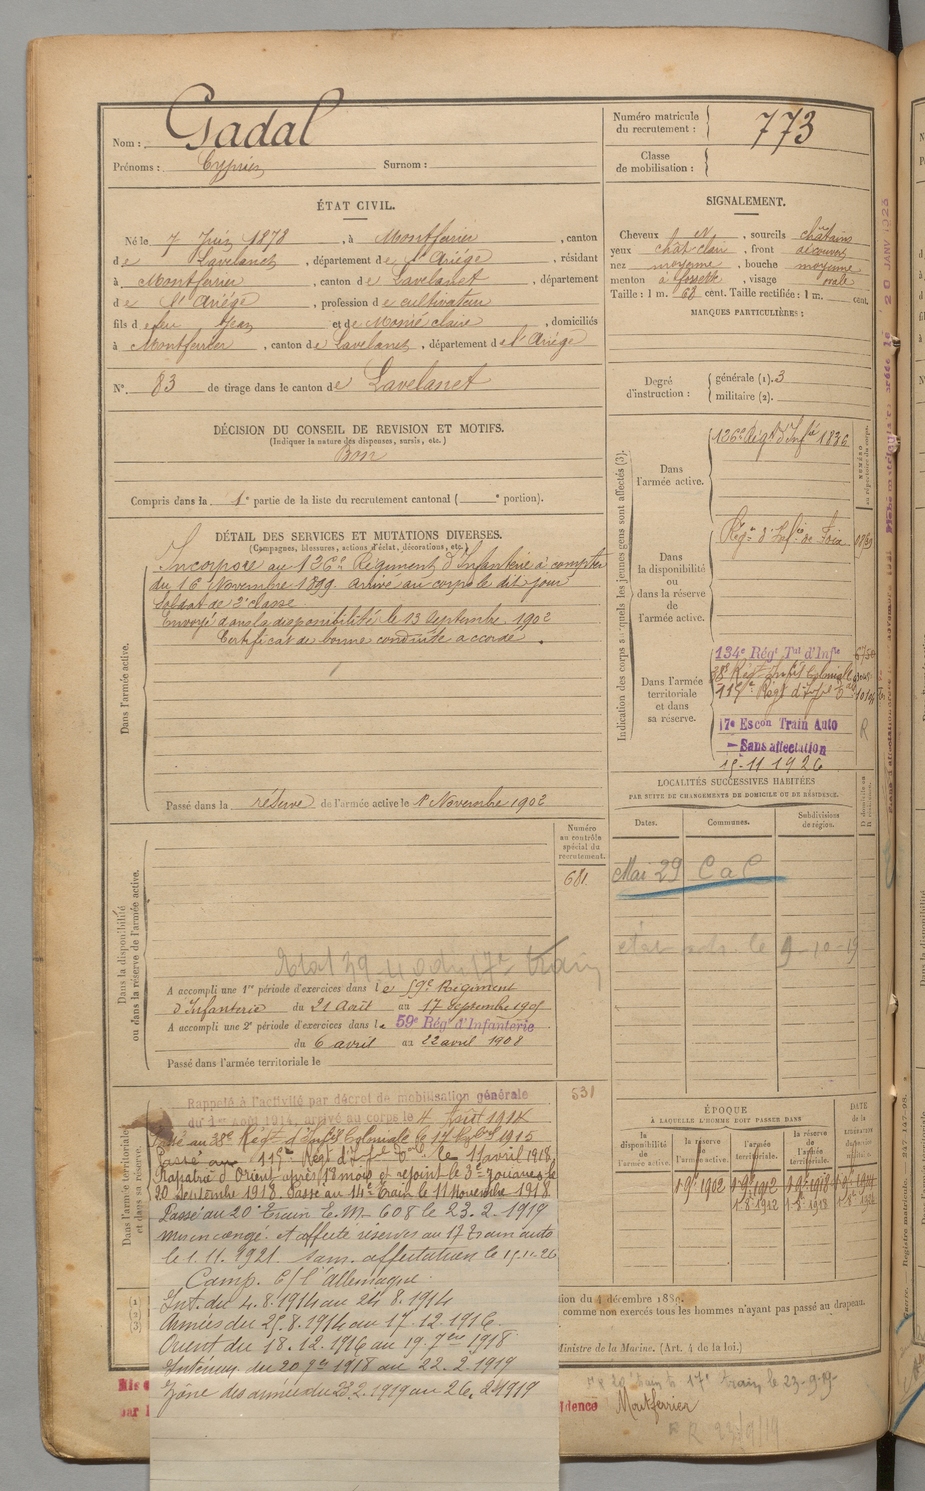 Nom : Gadal
Prénoms : Cyprien Surnom :
Numéro matricule du recrutement : 773
Classe de mobilisation :
ÉTAT CIVIL.
Né le 7 Juin 1878, à Montferrier, canton
de Lavelanet, département de l'Ariège, résidant
à Montferrier, canton de Lavelanet, département
de l'Ariège, profession de cultivateur
fils de feu Jean et de Marie claire, domiciliés
à Montferrier, canton de Lavelanet, département de l'Ariège
N° 83 de tirage dans le canton de Lavelanet
SIGNALEMENT.
Cheveux N, sourcils châtains
yeux chat-clair, front découvert
nez moyenne, bouche moyenne
menton à fossette, visage ovale
Taille : 1 m. 68 cent. Taille rectifiée : 1 m. cent.
MARQUES PARTICULIÈRES :
Degré d'instruction : générale (1). 3
militaire (2).
DÉCISION DU CONSEIL DE REVISION ET MOTIFS.
(Indiquer la nature des dispenses, sursis, etc.)
Bon
Compris dans la 1e partie de la liste du recrutement cantonal ( e portion).
DÉTAIL DES SERVICES ET MUTATIONS DIVERSES.
(Campagnes, blessures, actions d'éclat, décorations, etc.)
Dans l'armée active.
Incorporé au 136e Régiment d'Infanterie à compter
du 16 Novembre 1899. Arrivé au corps le dit jour
Soldat de 2e classe.
Envoyé dans la disponibilité le 13 Septembre 1902
Certificat de bonne conduite accordé.
Passé dans la réserve de l'armée active le 1er Novembre 1902
Indication des corps auxquels les jeunes gens sont affectés (3).
Dans l'armée active.
136e Régt d'Infie 1836
NUMÉRO au répertoire du corps.
Dans la disponibilité ou dans la réserve de l'armée active.
Régt d'Infie de Foix
Dans l'armée territoriale et dans sa réserve.
134e Régt Tal d'Infie
38e Régt Inf Coloniale
115e Régt d'Infie
17e Escon Train Auto
Sans affectation
15-11 1926
R
LOCALITÉS SUCCESSIVES HABITÉES
PAR SUITE DE CHANGEMENTS DE DOMICILE OU DE RÉSIDENCE.
Dates. Communes. Subdivisions de région.
Mai 29 C a C
le 9-10-19
Dans la disponibilité ou dans la réserve de l'armée active.
Numéro au contrôle spécial du recrutement.
681
A accompli une 1re période d'exercices dans le 59e Régiment
d'Infanterie du 21 Août au 17 septembre 1905
A accompli une 2e période d'exercices dans le 59e Régt d'Infanterie
du 6 avril au 22 avril 1908
Passé dans l'armée territoriale le
Dans l'armée territoriale et dans sa réserve.
531
Rappelé à l'activité par décret de mobilisation générale
du 1er Août 1914, arrivé au corps le 4 Août 1914
Passé au 38e Régt d'Infie Coloniale le 17 1915
Passé au 115e Régt d'Infie le 11 avril 1918
Rapatrié d'Orient après 18 mois et rejoint le 3e Zouaves le
20 Septembre 1918. Passé au 14e Train le 11 Novembre 1918.
Passé au 20e Train E.M. 608 le 23.2.1919
mis en congé et affecté réserves au 17 Train auto
le 1.11.1921. Sans affectation le 15.11.26
Camp. c/ l'Allemagne.
Int. du 4.8.1914 au 24.8.1914
Armées du 25.8.1914 au 17.12.1916
Orient du 18.12.1916 au 19.7bre 1918
Intérieur du 20 7bre 1918 au 22.2.1919
Zône des armées du 23.2.1919 au 26.2.1919
ÉPOQUE
À LAQUELLE L'HOMME DOIT PASSER DANS
la disponibilité de l'armée active.
la réserve de l'armée active.
l'armée territoriale.
la réserve de l'armée territoriale.
DATE de la
1-9bre 1902
1-8-1912
1-8-1918
tion du 4 décembre 1889.
comme non exercés tous les hommes n'ayant pas passé au drapeau.
Ministre de la Marine. (Art. 4 de la loi.)
17e train, le 23-9-19
idence
Montferrier
R 23/9/19